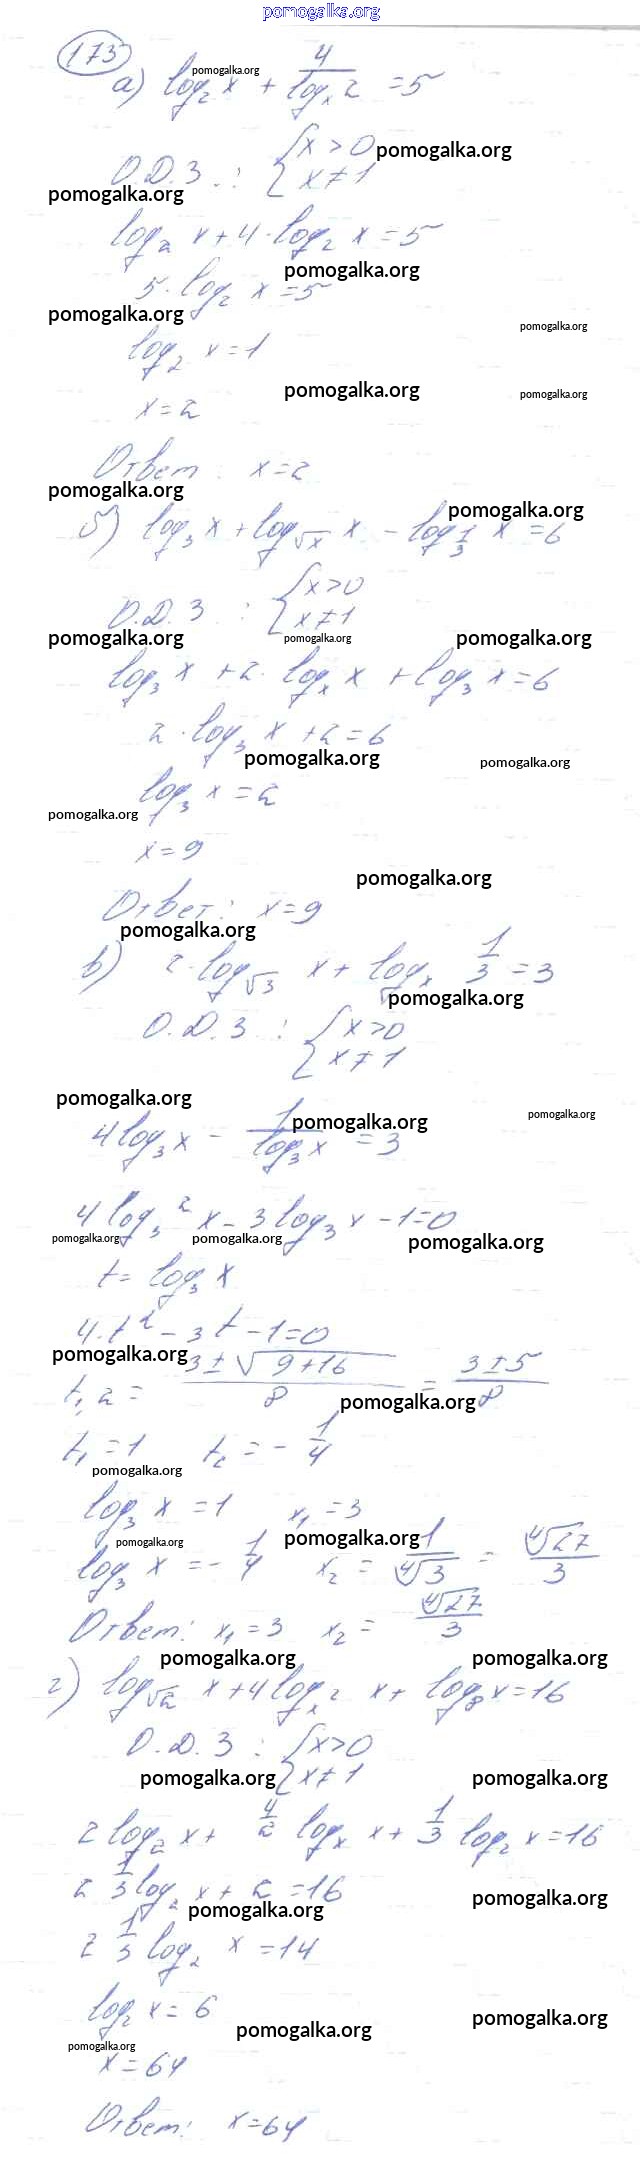 pomogalka.org
173
а) log₂ x + 4/logₓ 2 = 5
pomogalka.org
О.Д.З. : { x > 0
x ≠ 1
pomogalka.org
pomogalka.org
log₂ x + 4 · log₂ x = 5
5 · log₂ x = 5
pomogalka.org
pomogalka.org
pomogalka.org
log₂ x = 1
pomogalka.org
pomogalka.org
x = 2
Ответ : x = 2
pomogalka.org
pomogalka.org
б) log₃ x + log_√x x − log_1/3 x = 6
О.Д.З : { x > 0
x ≠ 1
pomogalka.org
pomogalka.org
pomogalka.org
log₃ x + 2 · logₓ x + log₃ x = 6
2 · log₃ x + 2 = 6
pomogalka.org
pomogalka.org
log₃ x = 2
pomogalka.org
x = 9
pomogalka.org
Ответ : x = 9
pomogalka.org
в) 2 · log_√3 x + logₓ 1/3 = 3
pomogalka.org
О.Д.З : { x > 0
x ≠ 1
pomogalka.org
pomogalka.org
pomogalka.org
4 log₃ x − 1/log₃ x = 3
4 log₃² x − 3 log₃ x − 1 = 0
pomogalka.org
pomogalka.org
pomogalka.org
t = log₃ x
4 · t² − 3t − 1 = 0
pomogalka.org
t₁,₂ = (3 ± √(9 + 16))/8 = (3 ± 5)/8
pomogalka.org
t₁ = 1 t₂ = − 1/4
pomogalka.org
log₃ x = 1 x₁ = 3
pomogalka.org
pomogalka.org
log₃ x = − 1/4 x₂ = 1/⁴√3 = ⁴√27/3
Ответ : x₁ = 3 x₂ = ⁴√27/3
pomogalka.org
pomogalka.org
г) log_√2 x + 4 log_x² x + log₈ x = 16
О.Д.З : { x > 0
x ≠ 1
pomogalka.org
pomogalka.org
2 log₂ x + 4/2 logₓ x + 1/3 log₂ x = 16
2 1/3 log₂ x + 2 = 16
pomogalka.org
pomogalka.org
2 1/3 log₂ x = 14
log₂ x = 6
pomogalka.org
pomogalka.org
pomogalka.org
x = 64
Ответ : x = 64